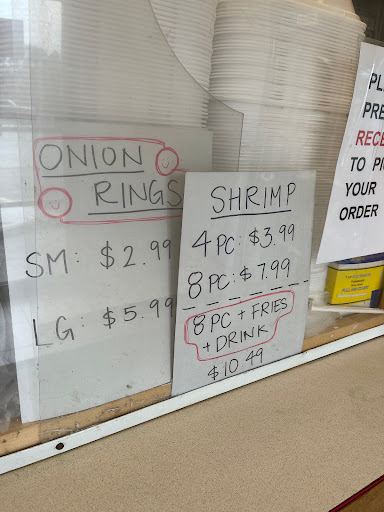 ONION
RINGS
SM: $2.99
LG: $5.99
SHRIMP
4 PC: $3.99
8 PC: $7.99
8 PC + FRIES
+ DRINK
$10.49
PL
PRE
RECE
TO PI
YOUR
ORDER